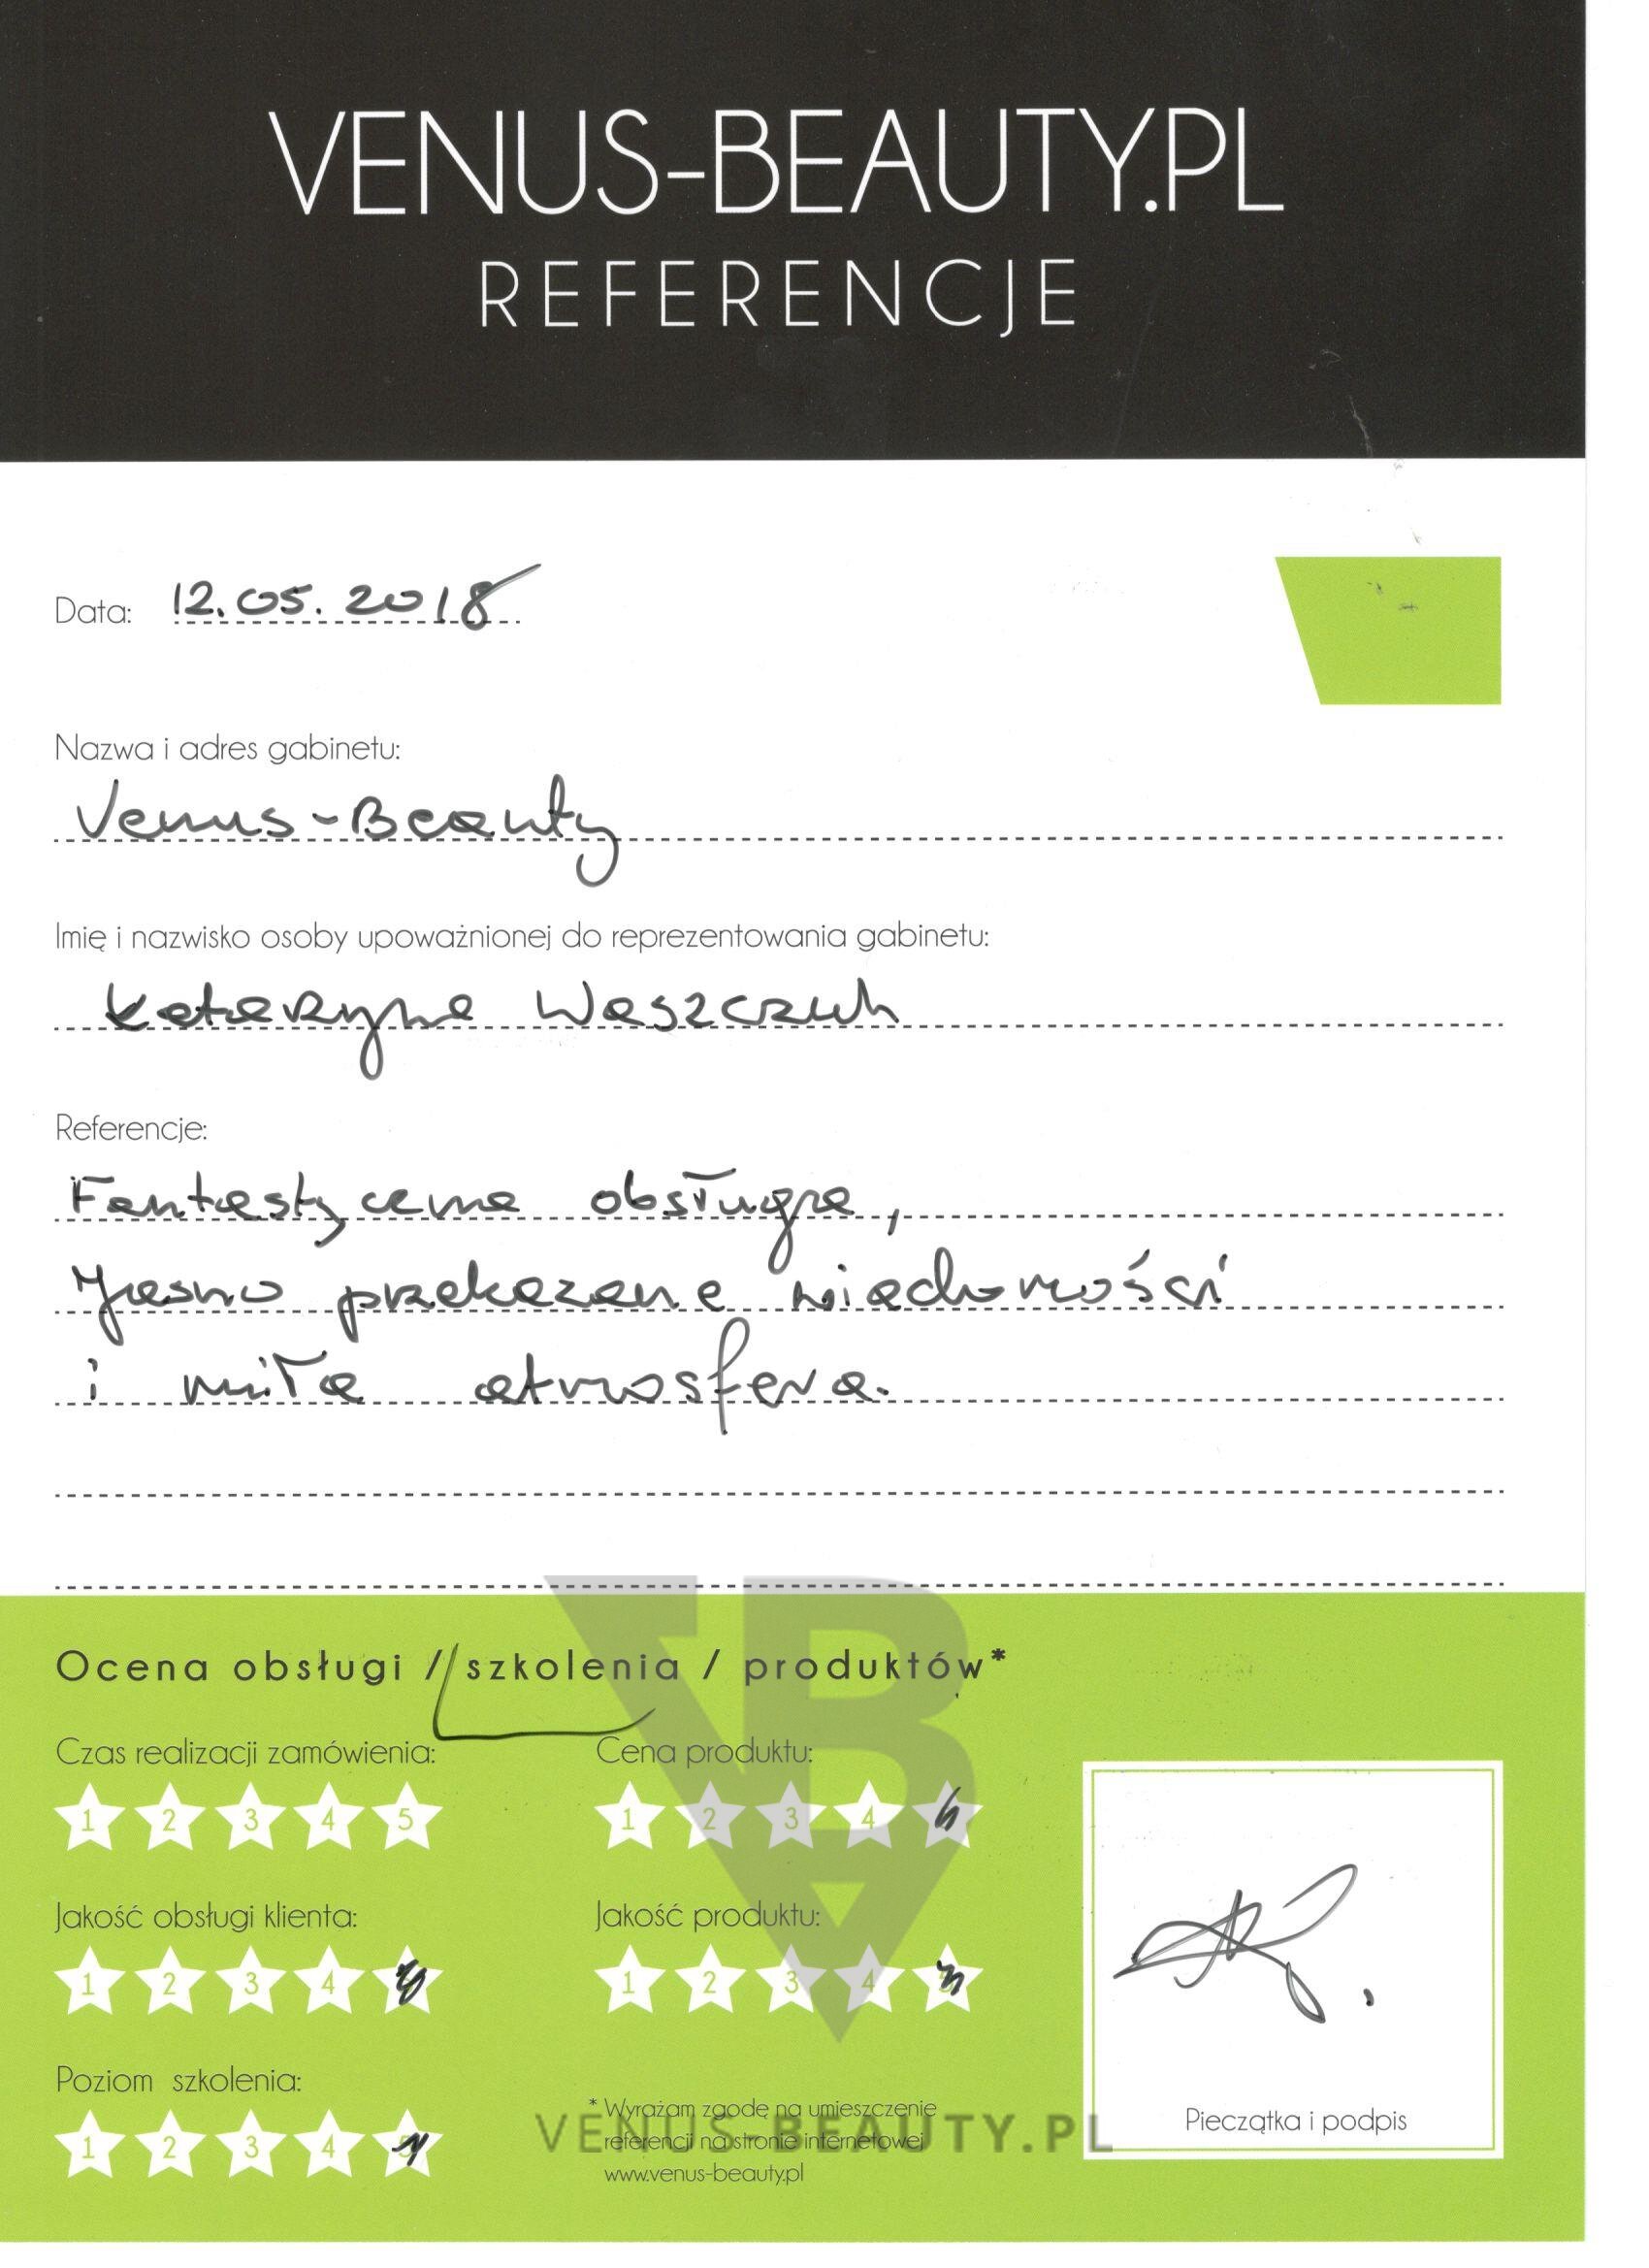 VENUS-BEAUTY.PL
REFERENCJE
Data: 12.05.2018
Nazwa i adres gabinetu:
Venus-Beauty
Imię i nazwisko osoby upoważnionej do reprezentowania gabinetu:
Kateryna Waszczuk
Referencje:
Fantastyczna obsługa,
Jasno przekazane wiadomości
i miła atmosfera.
Ocena obsługi / szkolenia / produktów*
Czas realizacji zamówienia:
1 2 3 4 5
Cena produktu:
1 2 3 4
Jakość obsługi klienta:
1 2 3 4
Jakość produktu:
1 2 3 4 5
Poziom szkolenia:
1 2 3 4 5
* Wyrażam zgodę na umieszczenie
referencji na stronie internetowej
www.venus-beauty.pl
Pieczątka i podpis
VENUS-BEAUTY.PL